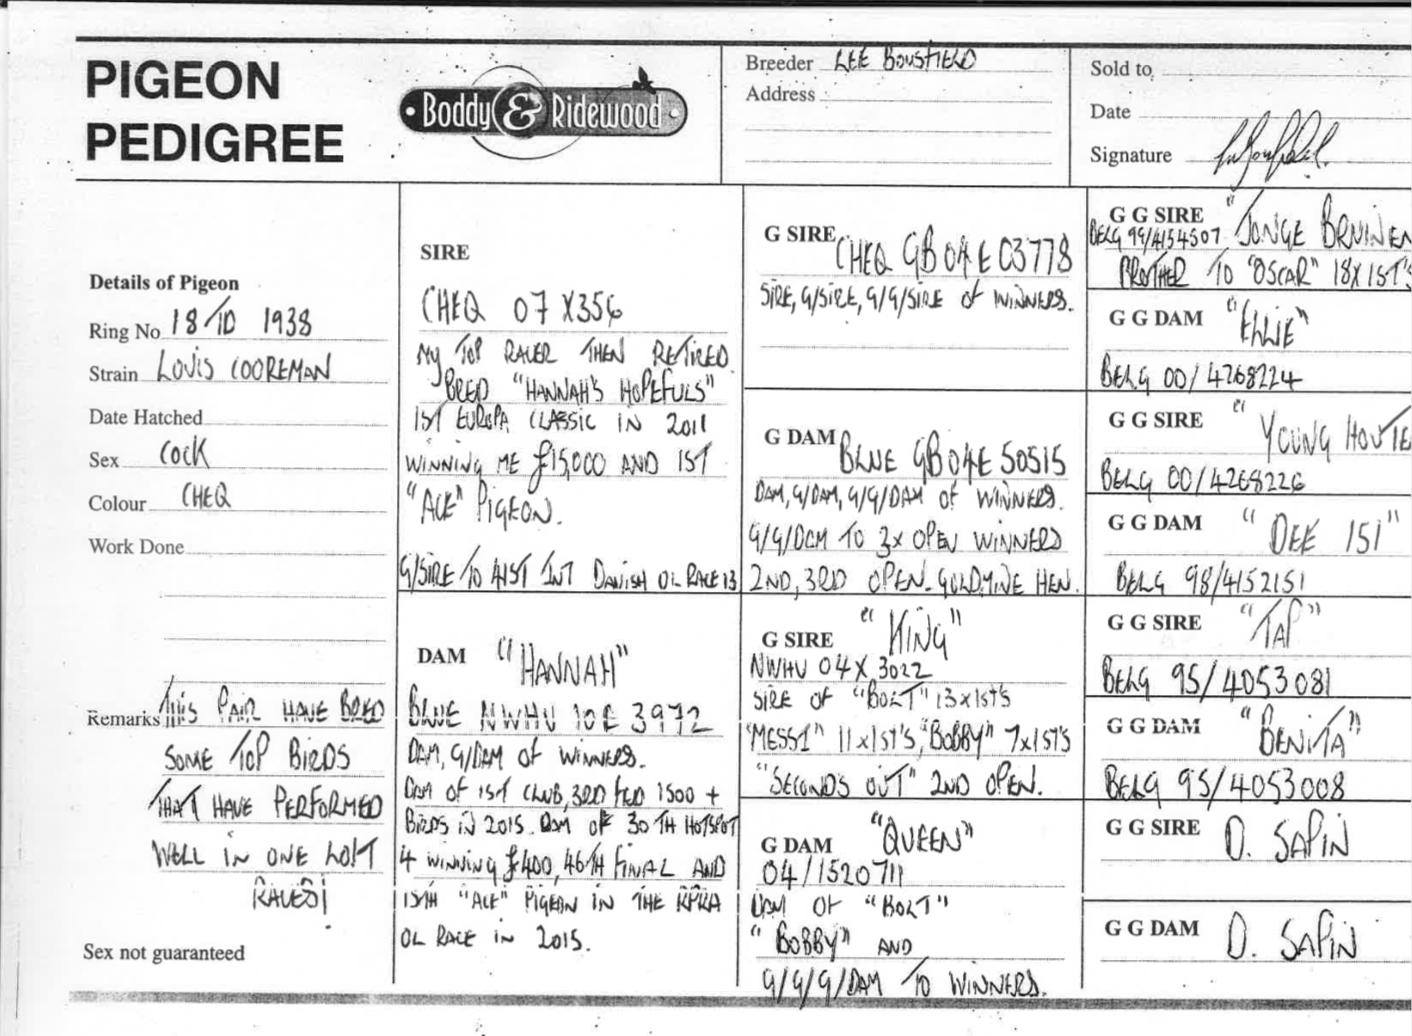 PIGEON
PEDIGREE
Boddy & Ridewood
Breeder LEE BOUSFIELD
Address
Sold to
Date
Signature
Details of Pigeon
Ring No 18/ID 1938
Strain LOUIS COOREMAN
Date Hatched
Sex COCK
Colour CHEQ
Work Done
Remarks THIS PAIR HAVE BRED
SOME TOP BIRDS
THAT HAVE PERFORMED
WELL IN ONE LOFT
RACES!
Sex not guaranteed
SIRE
CHEQ 07 X356
MY TOP RACER THEN RETIRED
BRED "HANNAH'S HOPEFULS"
1ST EUROPA CLASSIC IN 2011
WINNING ME £15,000 AND 1ST
"ACE" PIGEON.
G/SIRE TO 41ST INT DANISH OL RACE 13
DAM "HANNAH"
BLUE NWHU 10E 3972
DAM, G/DAM OF WINNERS.
DAM OF 1ST CLUB, 3RD FED 1500 +
BIRDS IN 2015. DAM OF 30TH HOTSPOT
4 WINNING £400, 46TH FINAL AND
15TH "ACE" PIGEON IN THE RPRA
OL RACE IN 2015.
G SIRE CHEQ GB04E03778
SIRE, G/SIRE, G/G/SIRE OF WINNERS.
G DAM BLUE GB04E50515
DAM, G/DAM, G/G/DAM OF WINNERS.
G/G/DAM TO 3X OPEN WINNERS
2ND, 3RD OPEN. GOLDMINE HEN.
G SIRE "KING"
NWHU 04X3022
SIRE OF "BOLT" 13X1ST'S
"MESSI" 11X1ST'S, "BOBBY" 7X1ST'S
"SECONDS OUT" 2ND OPEN.
G DAM "QUEEN"
04/1520711
DAM OF "BOLT"
"BOBBY" AND
G/G/G/DAM TO WINNERS.
G G SIRE "JONGE BRUINEN
BELG 99/4154507
BROTHER TO "OSCAR" 18X1ST'S
G G DAM "ELLIE"
BELG 00/4268224
G G SIRE "YOUNG HOUTE
BELG 00/4268226
G G DAM "DEE 151"
BELG 98/4152151
G G SIRE "TAP"
BELG 95/4053081
G G DAM "BENITA"
BELG 95/4053008
G G SIRE D. SAPIN
G G DAM D. SAPIN